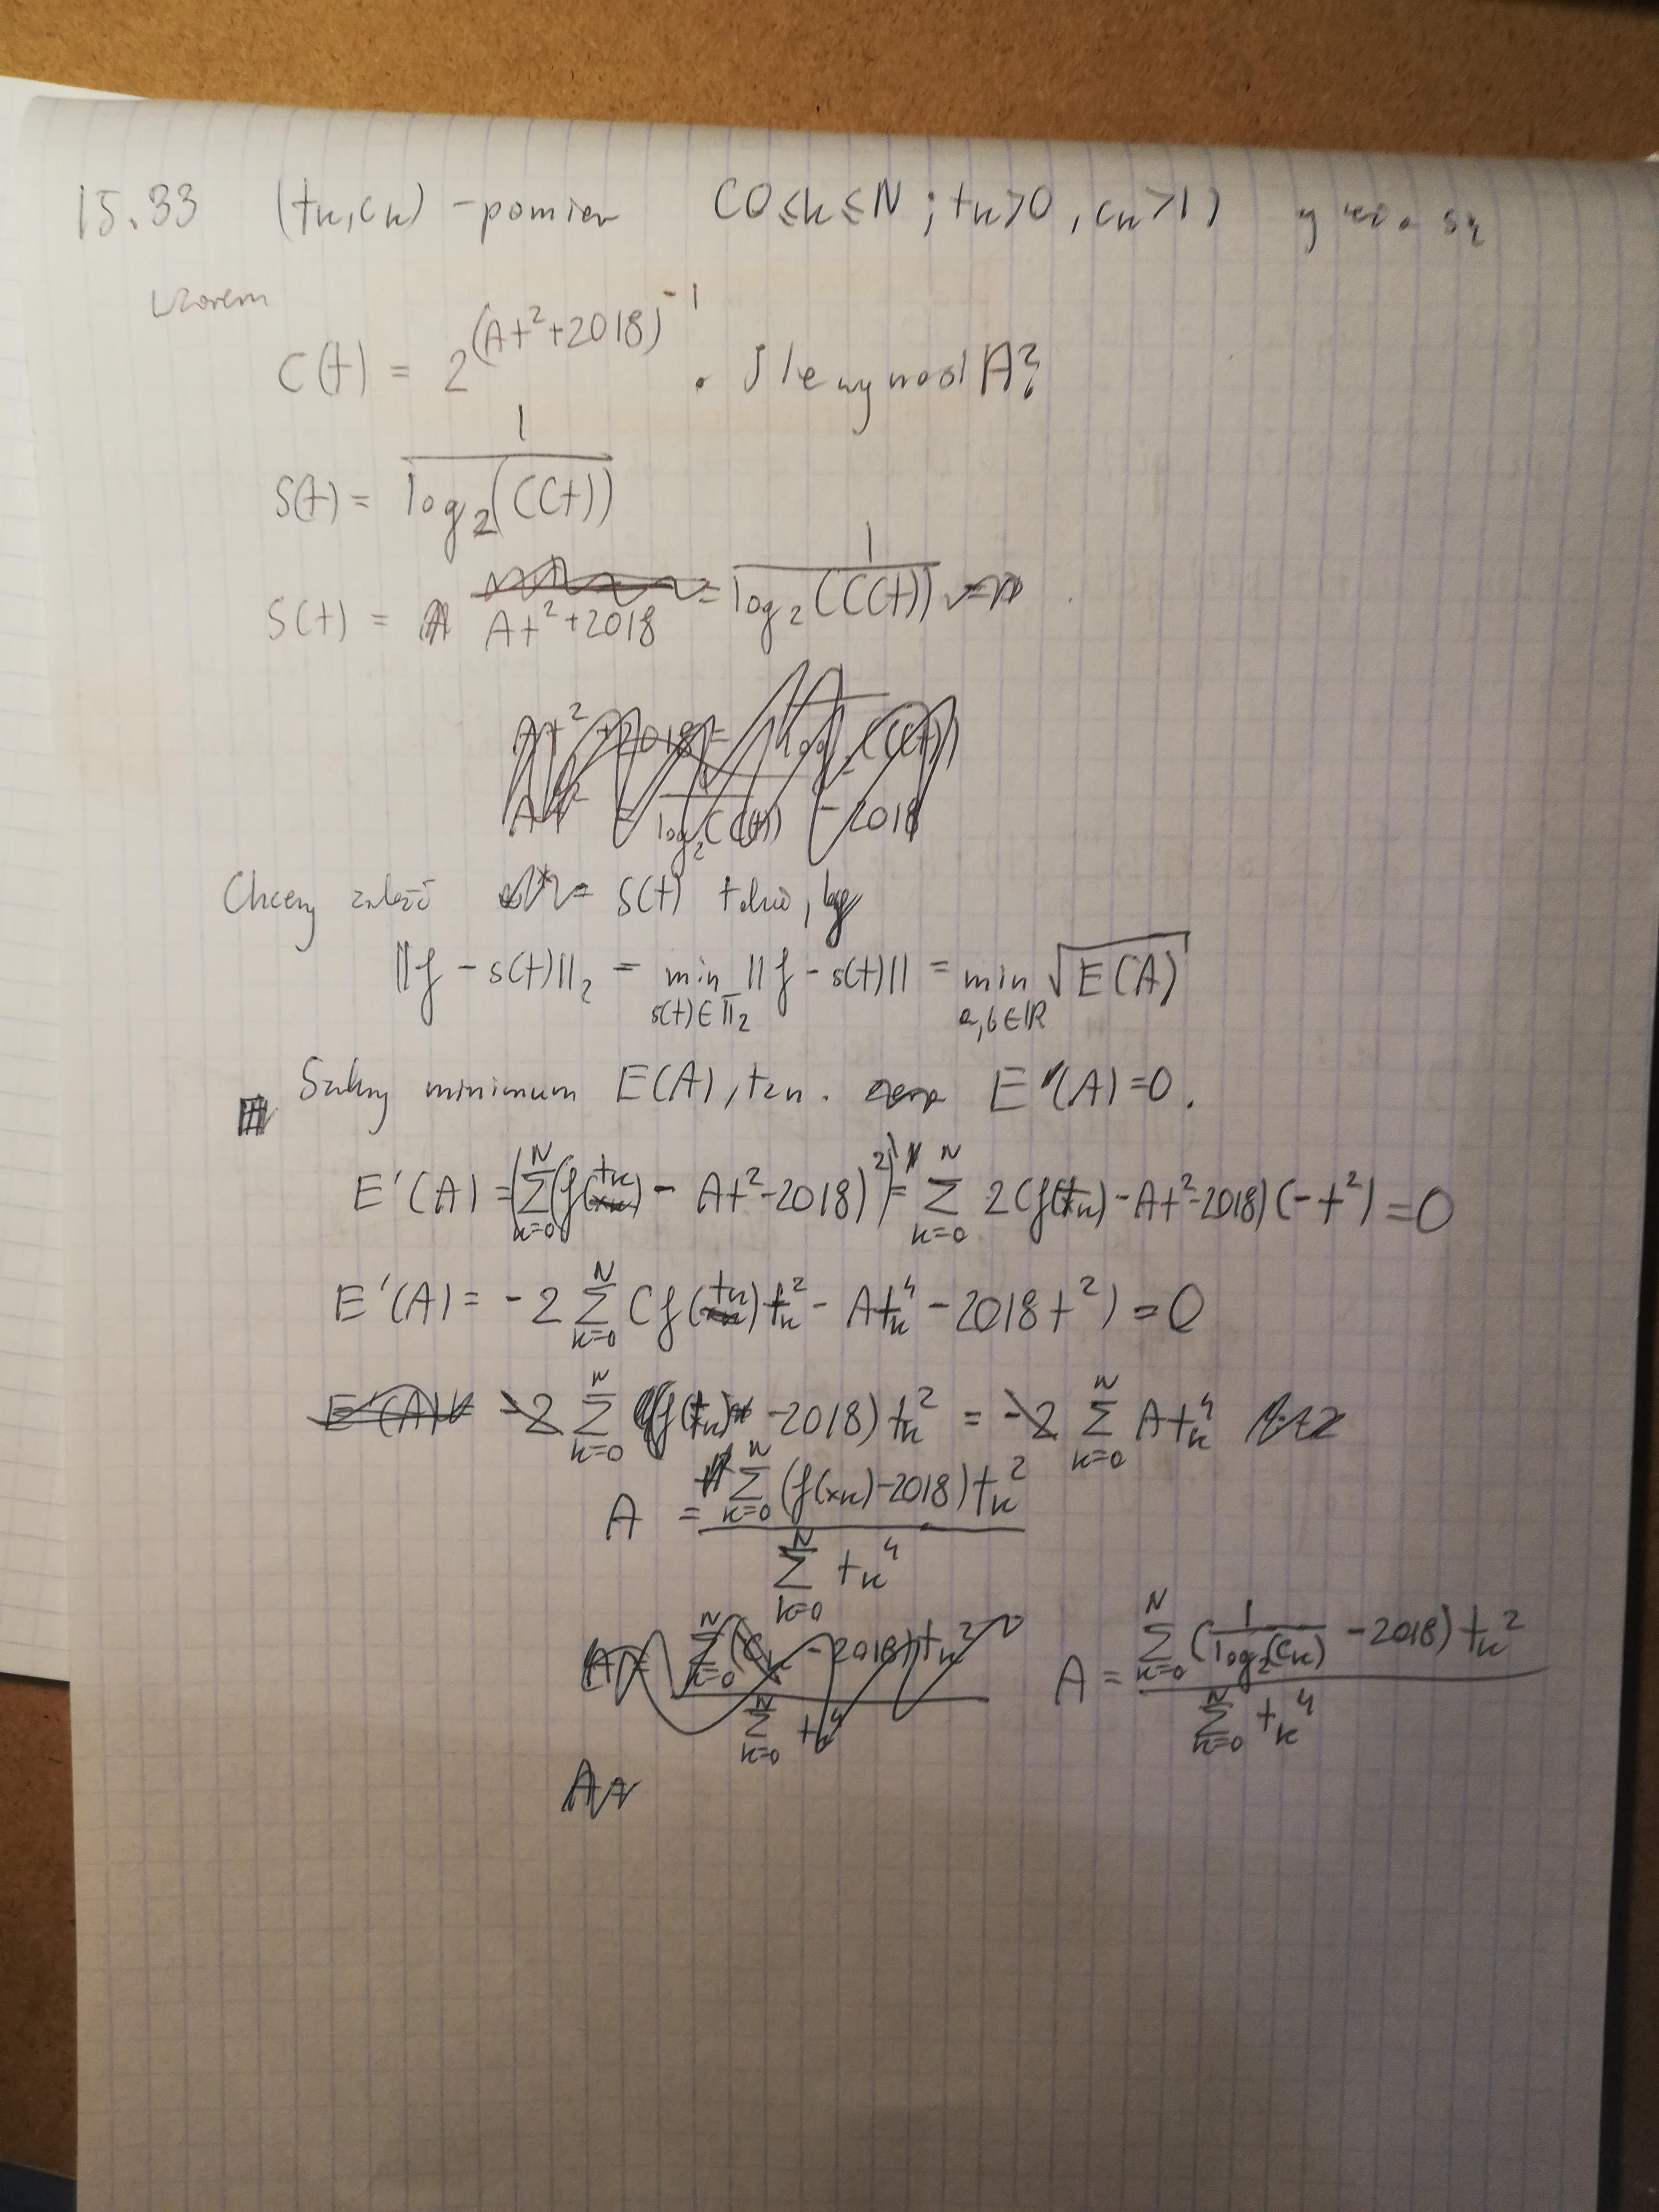 15.33 (tk, ck) - pomiar (0≤k≤N; tk>0, ck>1)
wzorem
C(t) = 2^(At²+2018)^-1 . Ile wynosi A?
S(t) = 1/log₂(C(t))
S(t) = At²+2018 = 1/log₂(C(t))
Chcemy znaleźć S(t) takie, by
||f - s(t)||₂ = min_{s(t)∈Π₂} ||f - s(t)|| = min_{a,b∈ℝ} √E(A)
Szukamy minimum E(A), tzn. E'(A)=0.
E'(A) = (∑_{k=0}^{N} (f(tk) - At²-2018)²)' = ∑_{k=0}^{N} 2(f(tk) - At²-2018)(-t²) = 0
E'(A) = -2 ∑_{k=0}^{N} (f(tk)tk² - Atk⁴ - 2018t²) = 0
-2 ∑_{k=0}^{N} (f(tk) - 2018) tk² = -2 ∑_{k=0}^{N} Atk⁴
A = ∑_{k=0}^{N} (f(xk)-2018)tk² / ∑_{k=0}^{N} tk⁴
A = ∑_{k=0}^{N} (1/log₂(ck) - 2018) tk² / ∑_{k=0}^{N} tk⁴